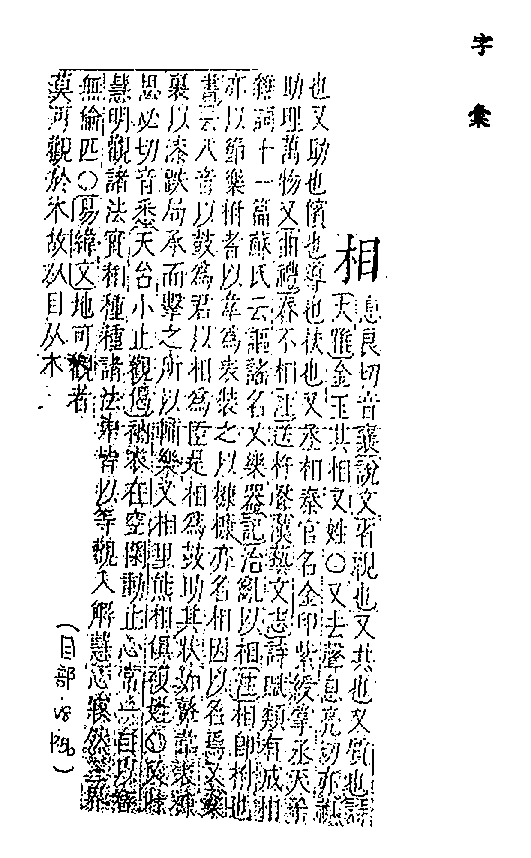 字彙
相
息良切音襄說文省視也又共也又質也詩
大雅金玉其相又姓○又去聲息亮切亦
也又助也儐也導也扶也又丞相秦官名金印紫綬掌丞天子
助理萬物又曲禮舂不相註送杵聲漢藝文志詩賦類有成相
雜詞十一篇蘇氏云謳謠名又樂器記治亂以相註相即拊也
亦以節樂拊者以韋為表裝之以糠糠亦名相因以名焉又樂
書云八音以鼓為君以相為臣是相為鼓助其狀如
襄以漆趺局承而擊之所以輔樂又相里熊相俱複姓○
思必切音悉天台小止觀偈衲衣在空閑動止心常一自以
慧明觀諸法實相種種諸法皆以等觀入解慧心寂然三界
無倫匹○易緯文地可觀者
莫可觀於木故从目从木
(目部·V8 P56)